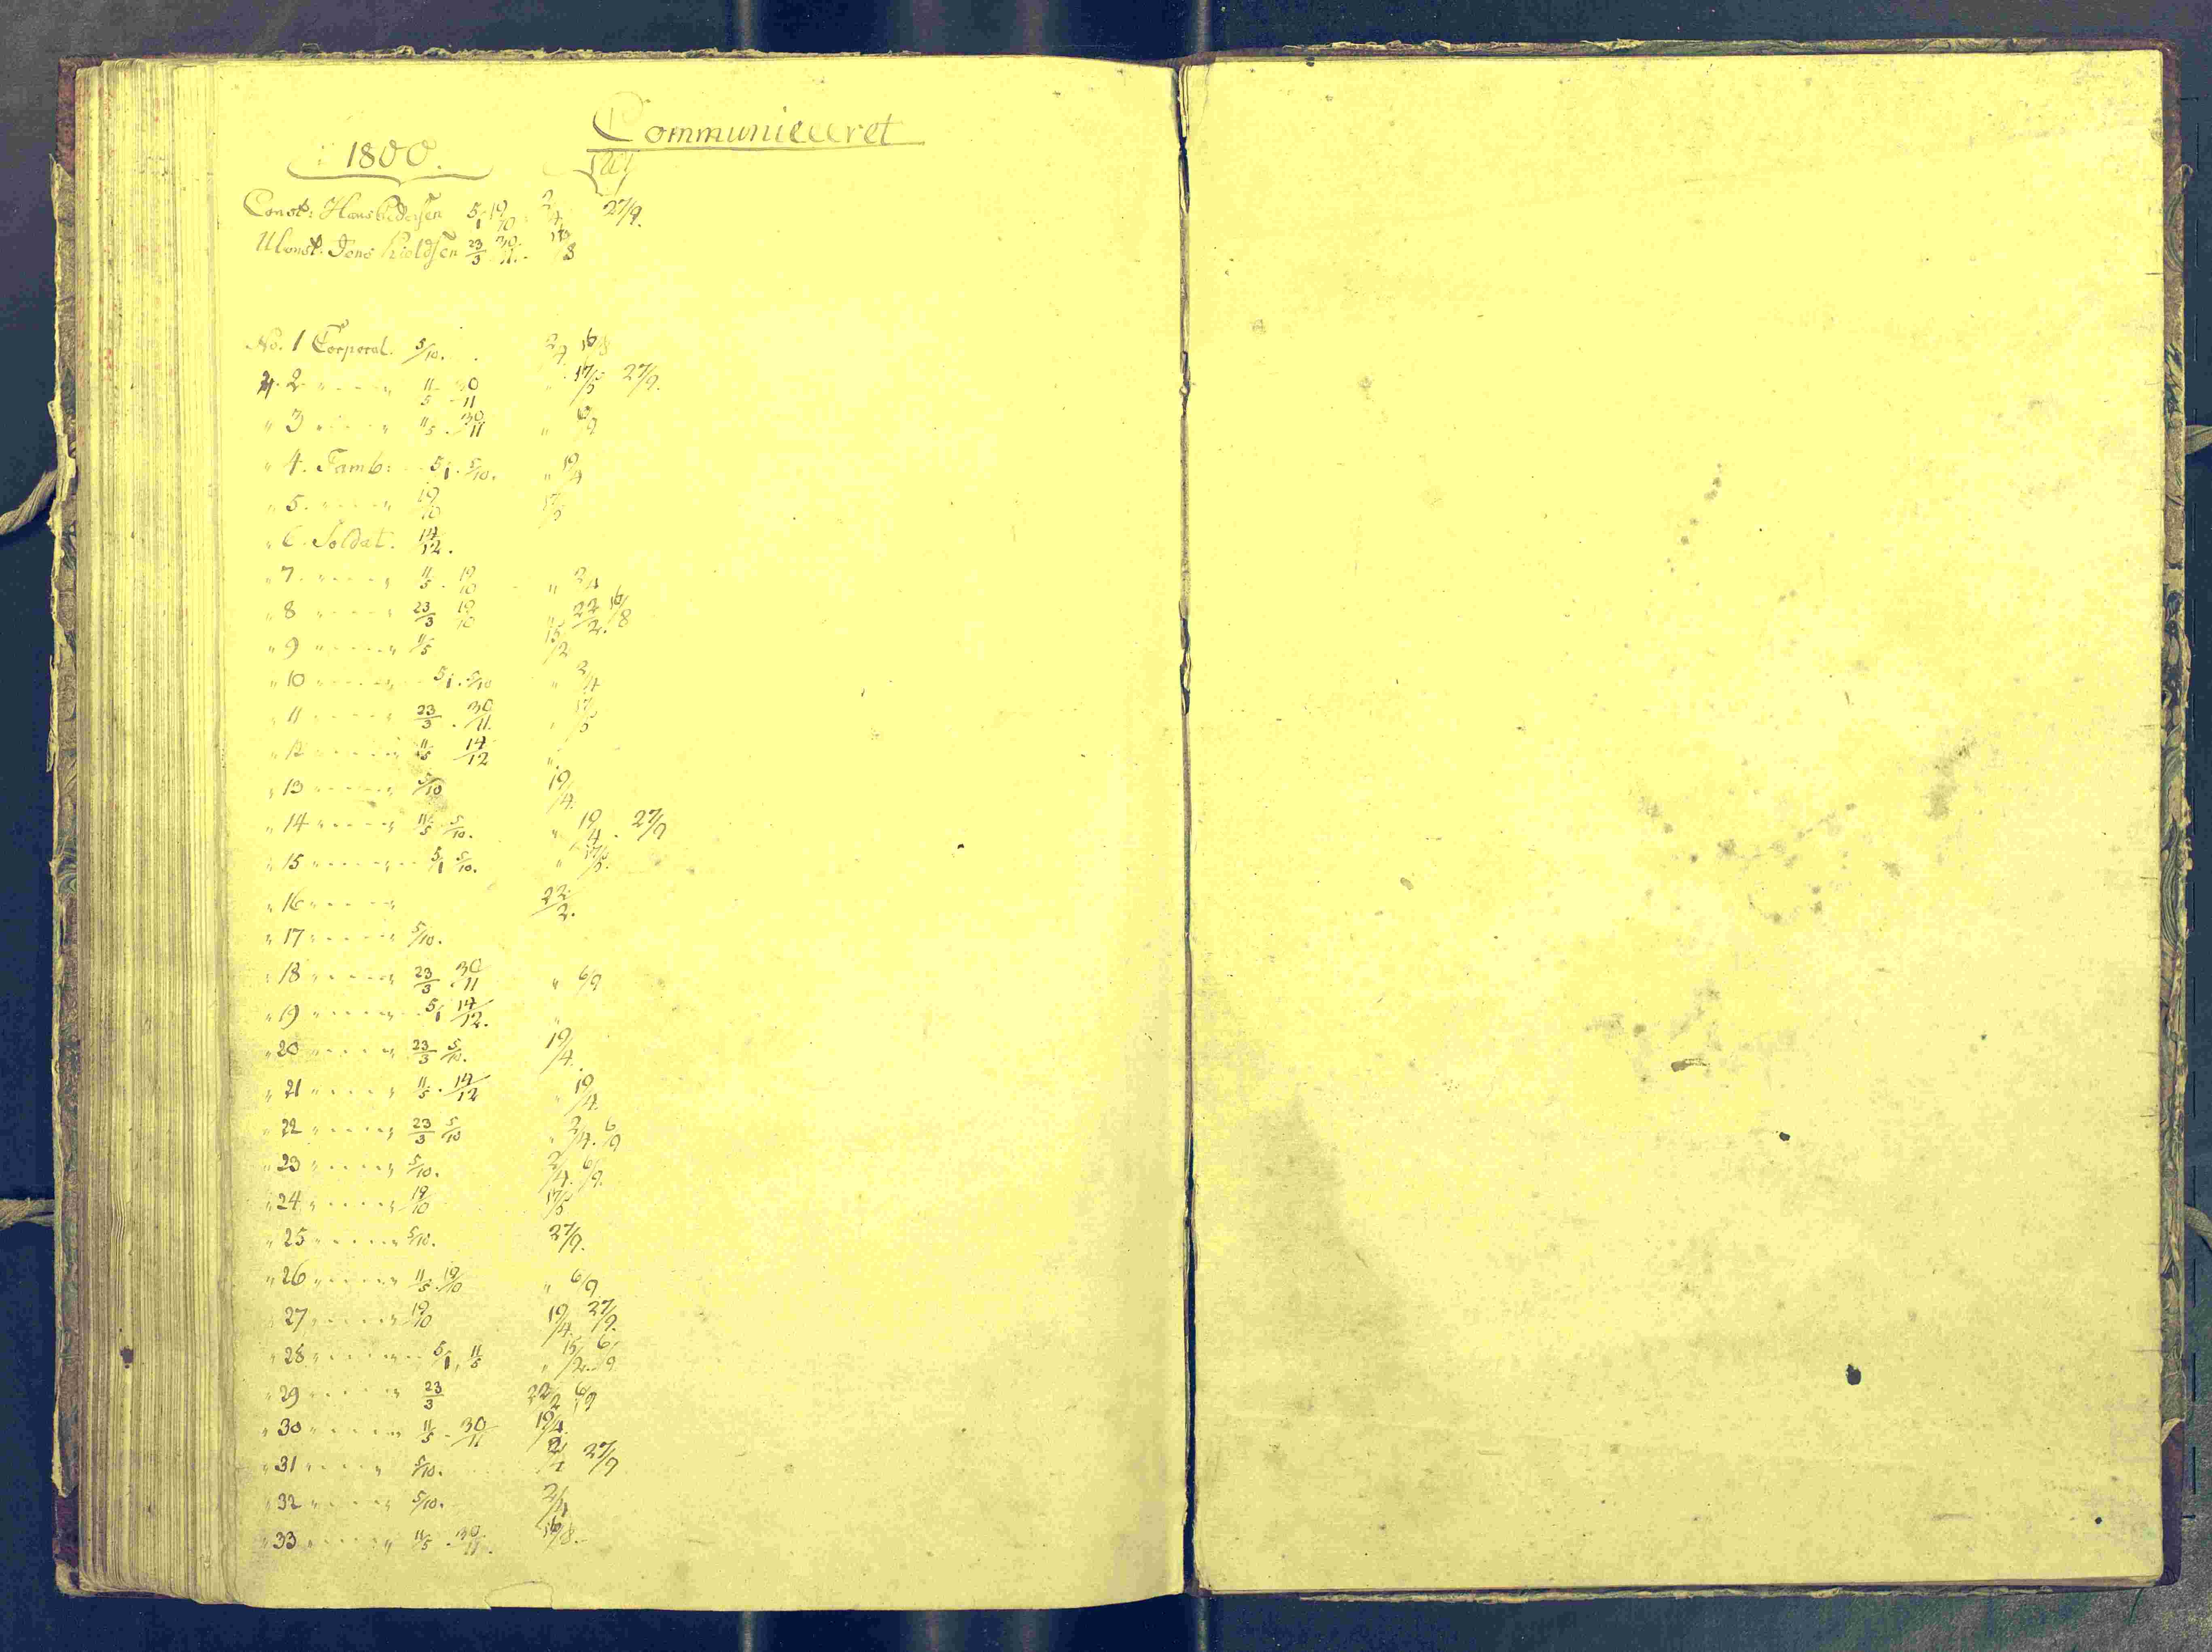 Communiceeret
1800.
Const: Hans Pedersen 5/1 19/10 2/4 27/9.
UConst. Jens Kieldsen 23/3 30/11. 16/8
No. 1 Corporal. 5/10. 2/4 16/8
" 2 " " 11/5 30/11 " 17/5 27/9.
" 3 " " 11/5 . 30/11 " 6/9
" 4. Tamb: 5/1 . 5/10. " 19/4
" 5. " " 19/10 17/5
" 6. Soldat. 14/12.
" 7. " " 11/5 . 19/10 " 2/4
" 8 " " 23/3 19/10 " 22/2. 16/8
" 9 " " 11/5 15/2
" 10 " " 5/1 . 5/10 " 2/4
" 11 " " 23/3 . 30/11. " 17/5
" 12 " " 11/5 14/12 "
" 13 " " 5/10 19/4.
" 14 " " 11/5 5/10. " 19/4 . 27/9
" 15 " " 5/1 5/10. " 17/5.
" 16 " " 22/2.
" 17 " " 5/10.
" 18 " " 23/3 . 30/11 " 6/9
" 19 " " 5/1 14/12. "
" 20 " " 23/3 5/10. 19/4.
" 21 " " 11/5 . 14/12 " 19/4.
" 22 " " 23/3 5/10 " 2/4. 6/9
" 23 " " 5/10. 2/4. 6/9.
" 24 " " 19/10 17/5
" 25 " " 5/10. 27/9.
" 26 " " 11/5 . 19/10 " 6/9
" 27 " " 19/10 19/4. 27/9.
" 28 " " 5/1 . 11/5 " 15/2. 6/9
" 29 " " 23/3 22/2 6/9
" 30 " " 11/5 . 30/11 19/4.
" 31 " " 5/10. 27/9
" 32 " " 5/10. 2/4
" 33 " " 11/5 . 30/11. 16/8.